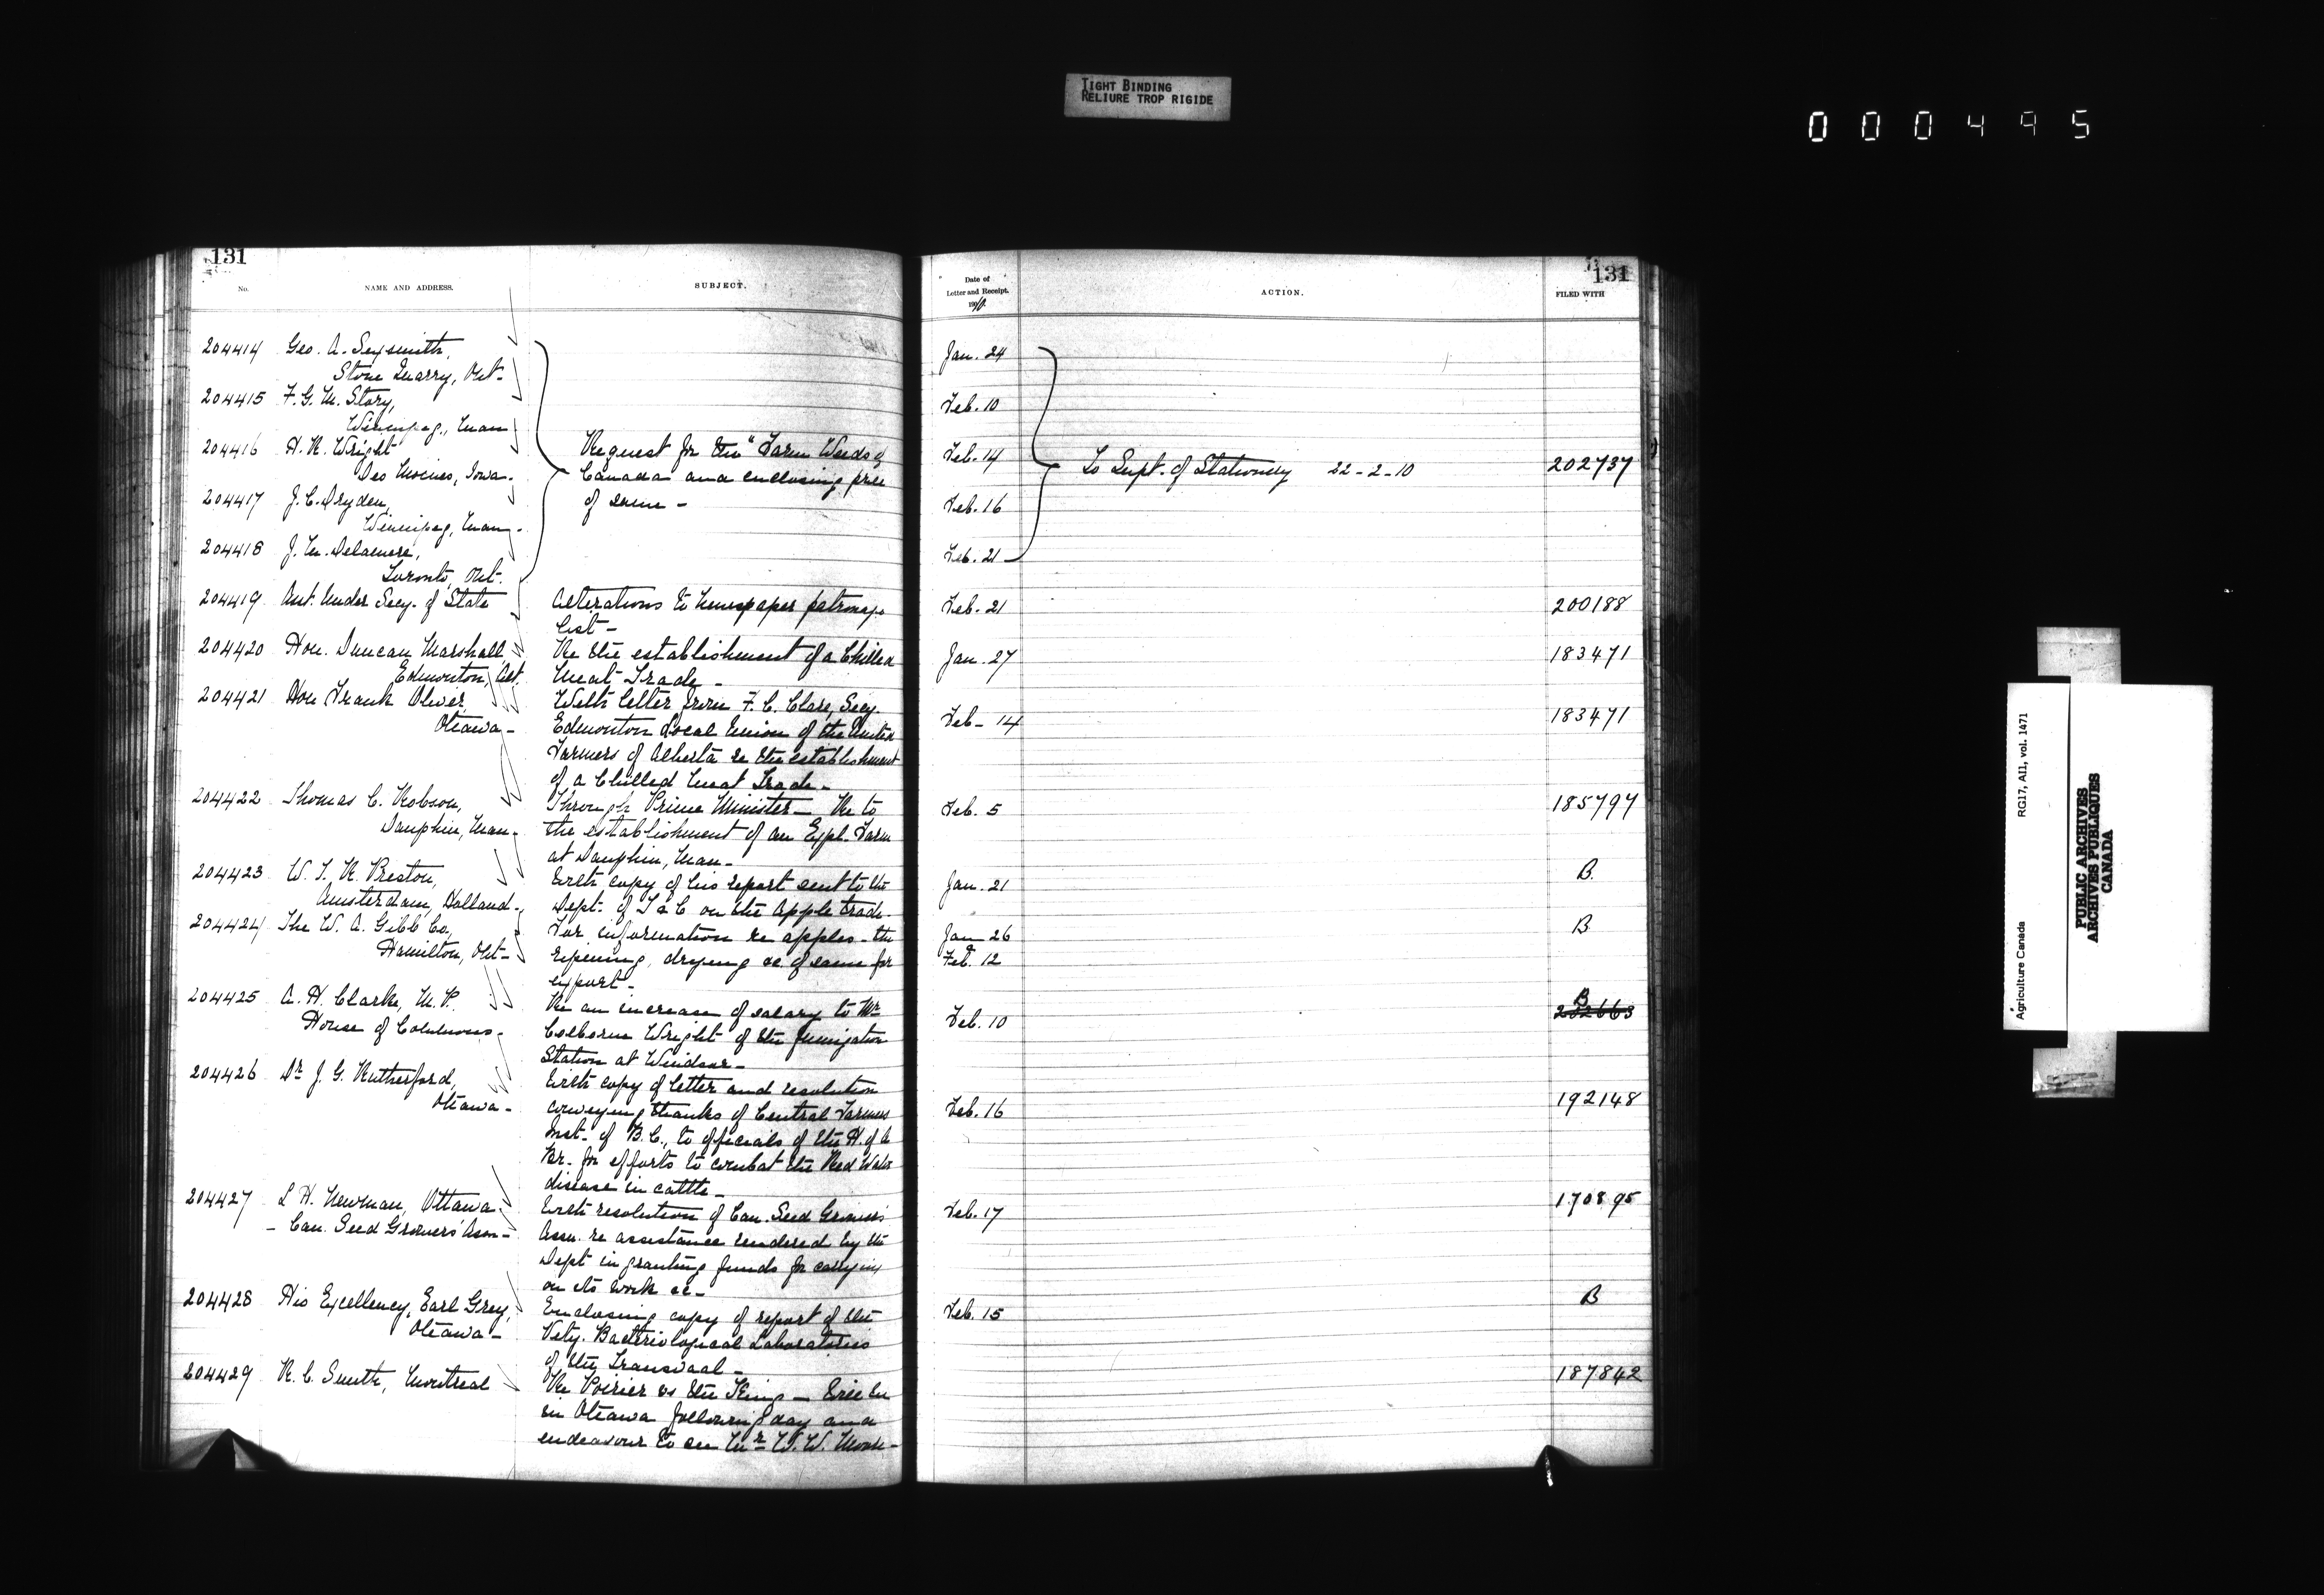 TIGHT BINDING
RELIURE TROP RIGIDE
000495
131
No.
NAME AND ADDRESS.
SUBJECT.
204414 Geo. A. Sexsmith,
Stone Quarry, Ont-
204415 F. G. M. Story,
Winnipeg, Man
204416 H. R. Wright
Des Moines, Iowa-
204417 J. C. Dryden,
Winnipeg, Man-
204418 J. M. Delamere,
Toronto, Ont.
Request for the "Farm Weeds of
Canada and enclosing price
of same -
204419 Under Secy. of State
Alterations to newspaper patronage
list -
204420 Hon. Duncan Marshall
Edmonton, Alt.
Re the establishment of a Chilled
Meat Trade -
204421 Hon Frank Oliver,
Ottawa -
With letter from F. C. Clare, Secy.
Edmonton Local Union of the United
Farmers of Alberta re the establishment
of a Chilled Meat Trade -
204422 Thomas C. Robson,
Dauphin, Man-
Through Prime Minister - Re to
the establishment of an Expl. Farm
at Dauphin, Man -
204423 W. T. R. Preston,
Amsterdam, Holland-
With copy of his report sent to the
Dept. of T & C on the apple trade-
204424 The W. A. Gibb Co.,
Hamilton, Ont-
For information re apples - the
ripening, drying &c. of same for
export -
204425 A. H. Clarke, M. P.
House of Commons-
Re an increase of salary to Mr
Colborne Wright of the fumigation
Station at Windsor -
204426 Dr J. G. Rutherford,
Ottawa -
With copy of letter and resolution
conveying thanks of Central Farmers
Inst- of B. C., to officials of the H. of A
Br- for efforts to combat the Red Water
disease in cattle -
204427 L H. Newman, Ottawa
- Can. Seed Growers' Assn -
With resolution of Can. Seed Growers'
Assn. re assistance rendered by the
Dept in granting funds for carrying
on its work &c -
204428 His Excellency, Earl Grey,
Ottawa -
Enclosing copy of report of the
Vety. Bacteriological Laboratories
of the Transvaal -
204429 R. C. Smith, Montreal
Re Poirier vs the King - Will be
in Ottawa following day and
endeavour to see Mr W. W. Moore-
131
Date of
Letter and Receipt.
1910.
ACTION.
FILED WITH
Jan. 24
Feb. 10
Feb. 14 To Supt. of Stationery 22-2-10 202737
Feb. 16
Feb. 21
Feb. 21 200188
Jan. 27 183471
Feb- 14 183471
Feb. 5 185797
Jan. 21 B.
Jan 26 B
&
Feb. 12
B
Feb. 10 202663
Feb. 16 192148
Feb. 17 170895
Feb. 15 B
187842
Agriculture Canada RG17, AI1, vol. 1471
PUBLIC ARCHIVES
ARCHIVES PUBLIQUES
CANADA